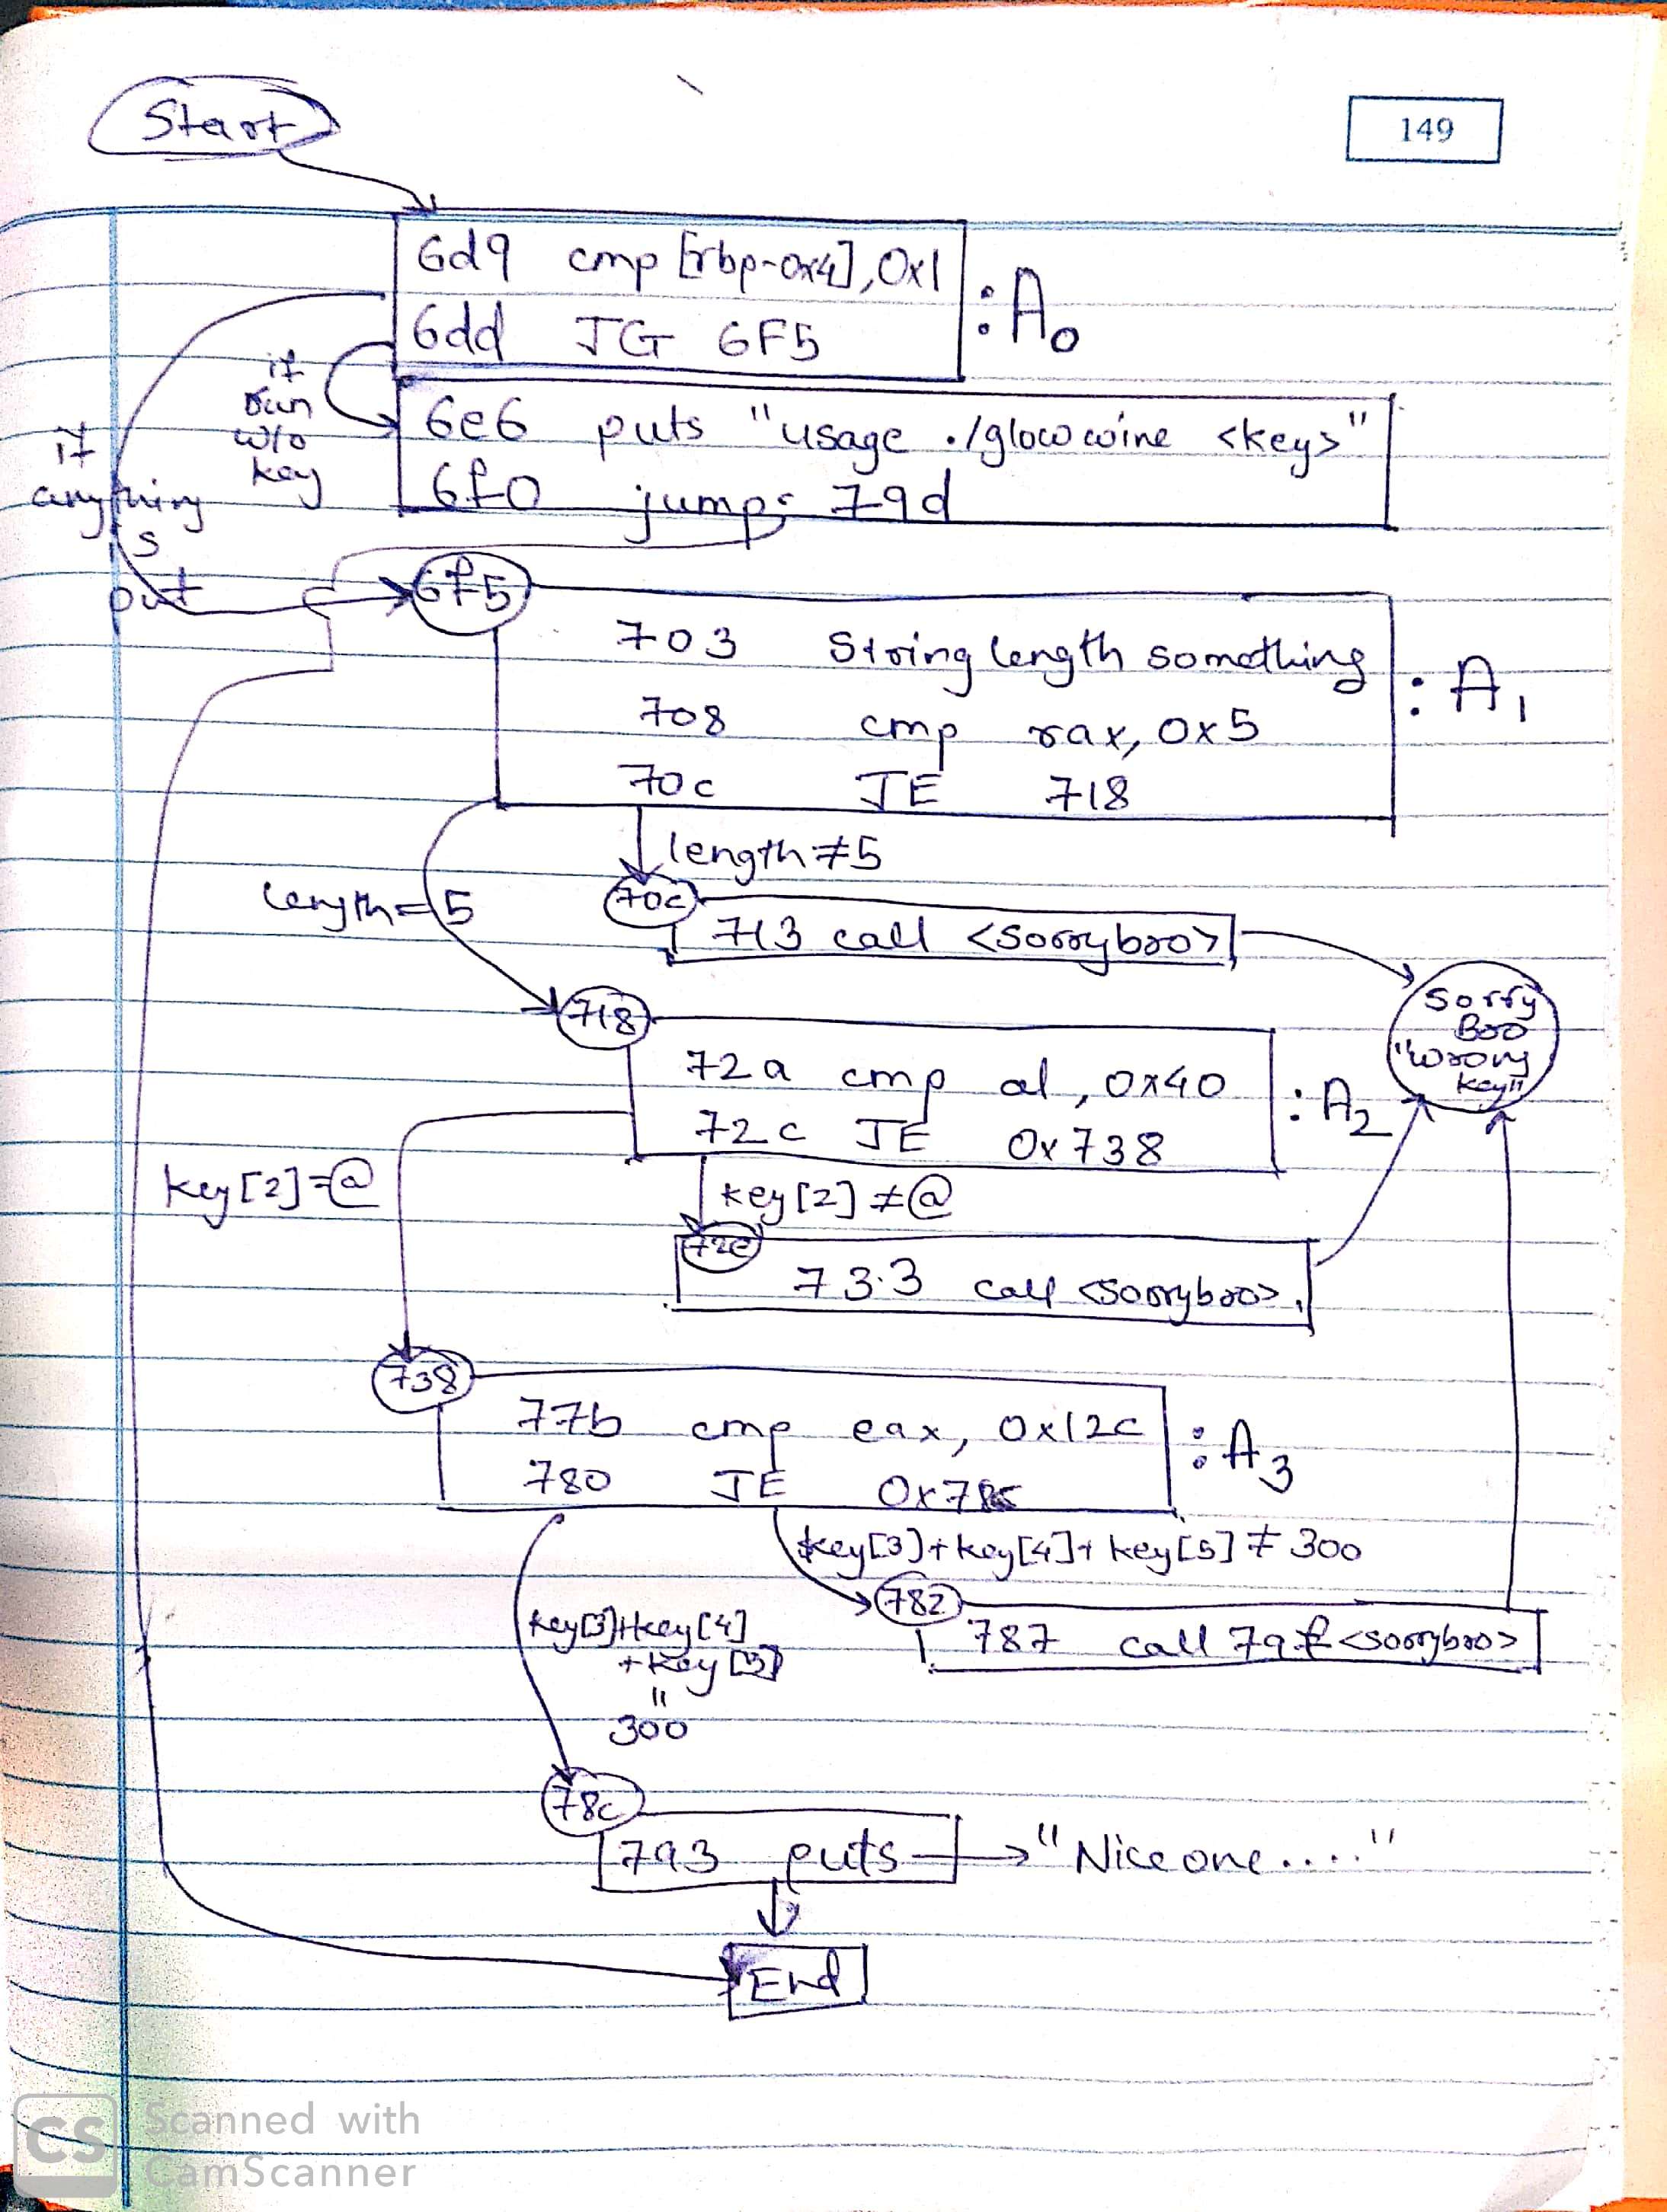 Start
149
6d9 cmp [rbp-0x4], 0x1
6dd JG 6F5
: A0
if run w/o key
6e6 puts "usage ./glowwine <key>"
6f0 jump: 79d
if anything s put
6f5
703 String length something
708 cmp rax, 0x5
70c JE 718
: A1
length≠5
length=5
70e
713 call <sorrybro>
Sorry Bro "Wrong key"
718
72a cmp al, 0x40
72c JE 0x738
: A2
key[2]=@
key[2]≠@
72e
733 call <sorrybro>
738
77b cmp eax, 0x12c
780 JE
: A3
key[3]+key[4]+key[5]≠300
782
787 call 79f <sorrybro>
key[3]+key[4]
+key[5]
"
300
78c
793 puts → "Nice one...."
End
CS Scanned with
CamScanner